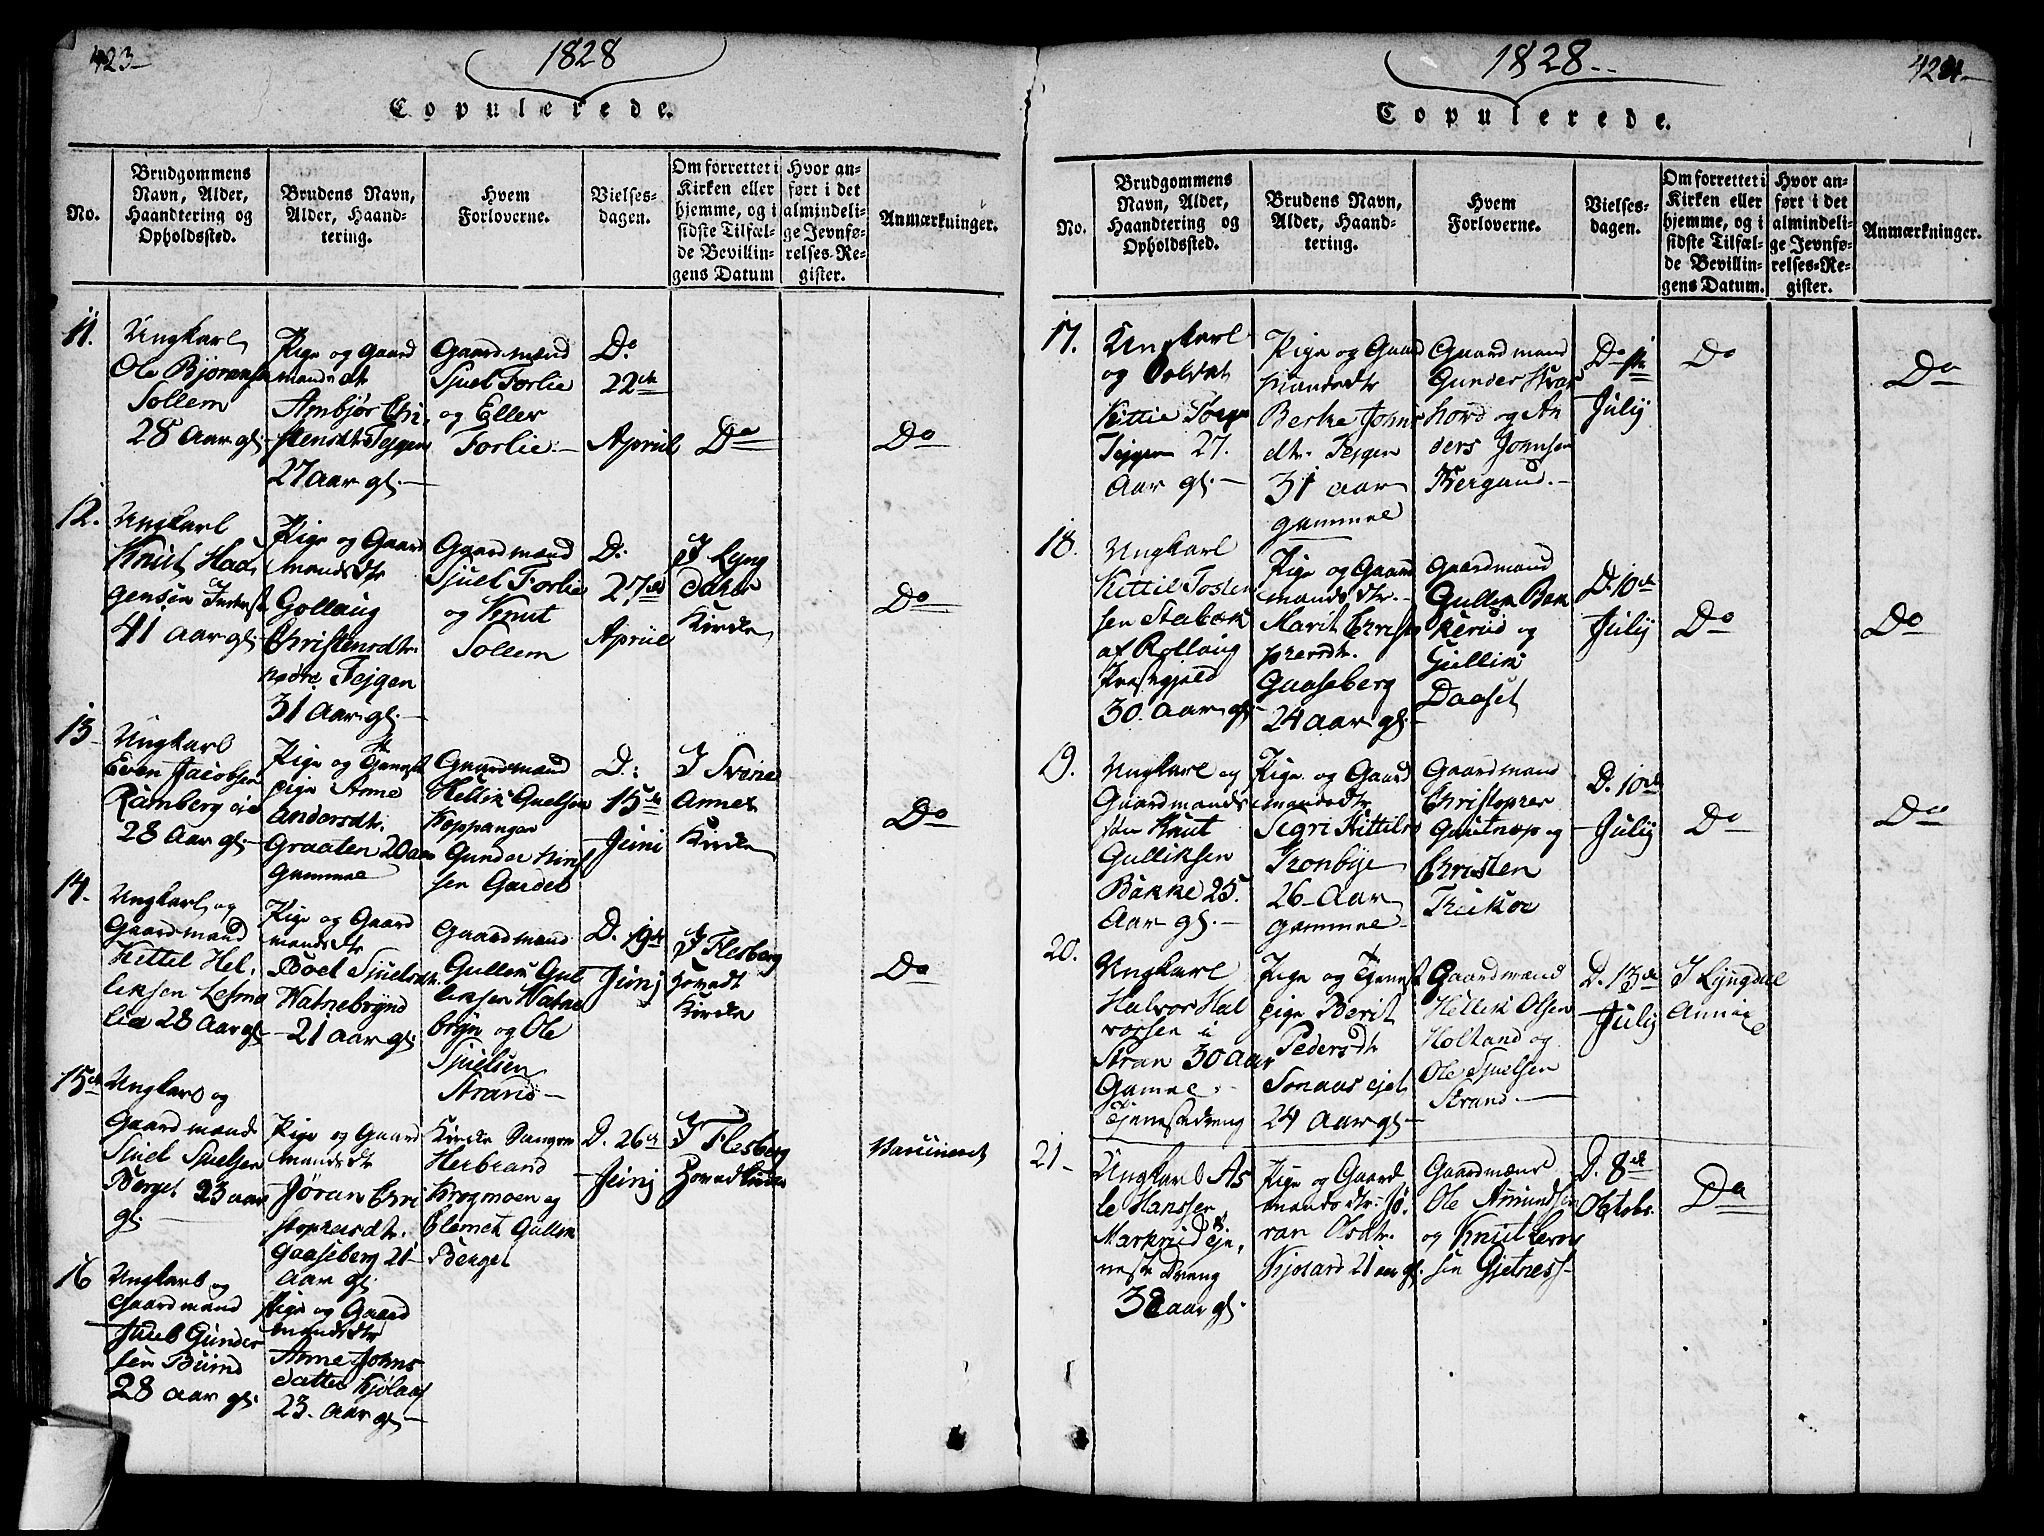 423
1828
Copulerede.
No.
Brudgommens
Navn, Alder,
Haandtering og
Opholdssted.
Brudens Navn,
Alder, Haand-
tering.
Hvem
Forloverne.
Vielses-
dagen.
Om forrettet i
Kirken eller
hjemme, og i
sidste Tilfæl-
de Bevillin-
gens Datum
Hvor an-
ført i det
almindeli-
ge Jevnfø-
relses-Re-
gister.
Anmærkninger.
11.
Ungkarl
Ole Bjørensen
Sollem
28 Aar gl.
Pige og Gaard
mandsdt
Ambjør Chri-
stensdtr Tejgen
27 Aar gl.
Gaardmænd
Sjuel Forlie
og Eller
Forlie.
Do
22de
April
Do
Do
12.
Ungkarl
Knut
41 Aar gl.
Pige og Gaard
mandsdtr
Gollaug
Christensdtr.
nødre Tejgen
31 Aar gl.
Gaardmænd
Sjuel Forlie
og Knut
Sollem
D.
27de
April
I Lyng
dahls
Kirke
Do
13
Ungkarl
Even Jacobsen
Ramberg eie
28 Aar gl.
Pige og Tjenest
pige Anne
Andersdtr.
Graaten 20 aar
Gammel
Gaardmænd
Hellik Guelsen
Koppangen
Gunder
sen Gardet
D.:
15de
Juni
I Svene
Annex
Kirke
Do
14.
Ungkarl og
Gaardmand
Kittel Hel-
liksen Lesma
lia 28 Aar gl.
Pige og Gaard
mandsdtr
Boel Sjuelsdtr.
Watnebrynd
21 Aar gl.
Gaardmænd
Gullik Gul
liksen Watne
bryn og Ole
Sjuelsen
Strand
D. 19de
Junj
I Flesberg
hovedt
Kirke
Do
15de
Ungkarl og
Gaardmand
Sjuel Sjuelsen
Berget 23 aar
gl.
Pige og Gaard
mandsdtr
Jøran Chri
stophersdtr.
Gaaseberg 21
Aar gl.
Kirke Sanger
Herbrand
Krogmoen og
Clemet Gullik
Berget
D. 26de
Junj
I Flesberg
Hovedkirke
Vaccineret
16
Ungkarl og
Gaardmand
Juel Gunder
sen Buind
28 Aar gl.
Pige og Gaard
mandsdtr
Anne Johns
datter Kjølaas
23. Aar gl.
1828
424
Copulerede.
No.
Brudgommens
Navn, Alder,
Haandtering og
Opholdssted.
Brudens Navn,
Alder, Haand-
tering.
Hvem
Forloverne.
Vielses-
dagen.
Om forrettet i
Kirken eller
hjemme, og i
sidste Tilfæl-
de Bevillin-
gens Datum.
Hvor an-
ført i det
almindeli-
ge Jevnfø-
relses-Re-
gister.
Anmærkninger.
17.
Ungkarl
og Soldat
Kittil
Tejgen 27.
Aar gl.
Pige og Gaard
mandsdtr
Berte Johns
dtr. Tejgen
31 aar
gammel
Gaardmænd
Gunder Hvas
hovd og An
ders Johnsen
Bergaud.
Do
July
Do
Do
18.
Ungkarl
Kittil Tosten
sen Stabæk
af Rollaug
Præstegjeld
30. Aar gl.
Pige og Gaard
mandsdtr.
Marit Christo
phersdtr.
Gaaseberg
24 aar gl.
Gaardmænd
Gullik Bak
kerud og
Gullik
Daaset
D. 10de
July
Do
Do
19.
Ungkarl og
Gaardmands
søn Knut
Gulliksen
Bakke 25.
Aar gl.
Pige og Gaard
mandsdtr
Segri Kittils
Tronbye
26 Aar
gammel
Gaardmænd
Christopher
Gautnæp og
Christen
D. 10de
July
Do
Do
20.
Ungkarl
Halvor Hal
vorsen i
Stran 30 aar
Gamel
Tjenestedreng
Pige og Tjenest
pige Berit
Pedersdtr
Sonaas ejet
24 Aar gl.
Gaardmænd
Hellik Olsen
Holtand og
Ole Sjuelsen
Strand.
D. 13de
July
I Lyngdal
Annex
21
Ungkarl As
le Hanssen
Markrud
neste Dreng
38 aar gl.
Pige og Gaard
mandsdtr. Jø.
ran Olsdtr.
Kjosard 21 aar gl.
Gaardmænd
Ole Amundsen
og Knut Levor
sen Gjetness
D. 8de
Octobr.
Do